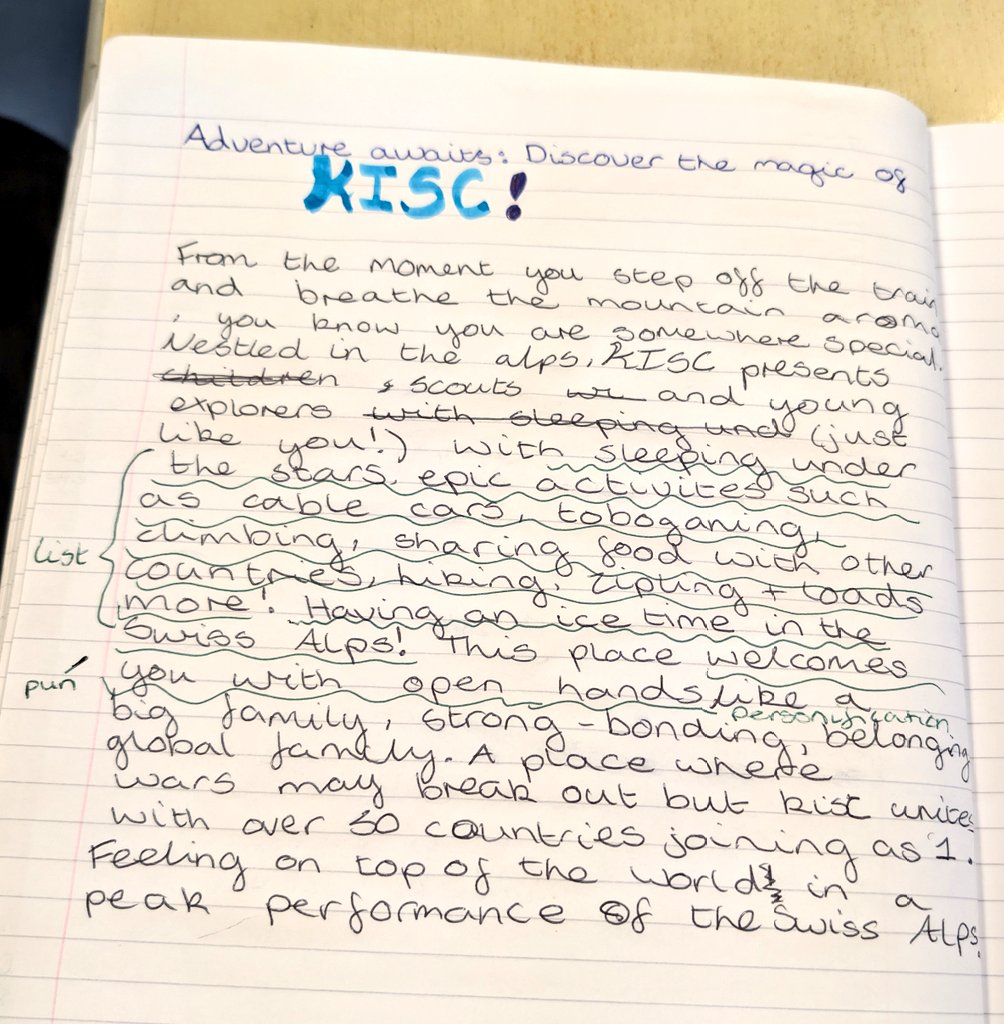 Adventure awaits: Discover the magic of
KISC!
From the moment you step off the train
and breathe the mountain aroma
, you know you are somewhere special.
Nestled in the alps, KISC presents
children , scouts and young
explorers with sleeping und (just
like you!) with sleeping under
the stars, epic activites such
as cable cars, toboganing,
climbing, sharing food with other
list
countries, hiking, zipling + loads
more! Having an ice time in the
Swiss Alps! This place welcomes
pun
you with open hands, like a
personification
big family, strong-bonding, belonging
global family. A place where
wars may break out but kisc unites
with over 50 countries joining as 1.
Feeling on top of the world in a
peak performance of the Swiss Alps.